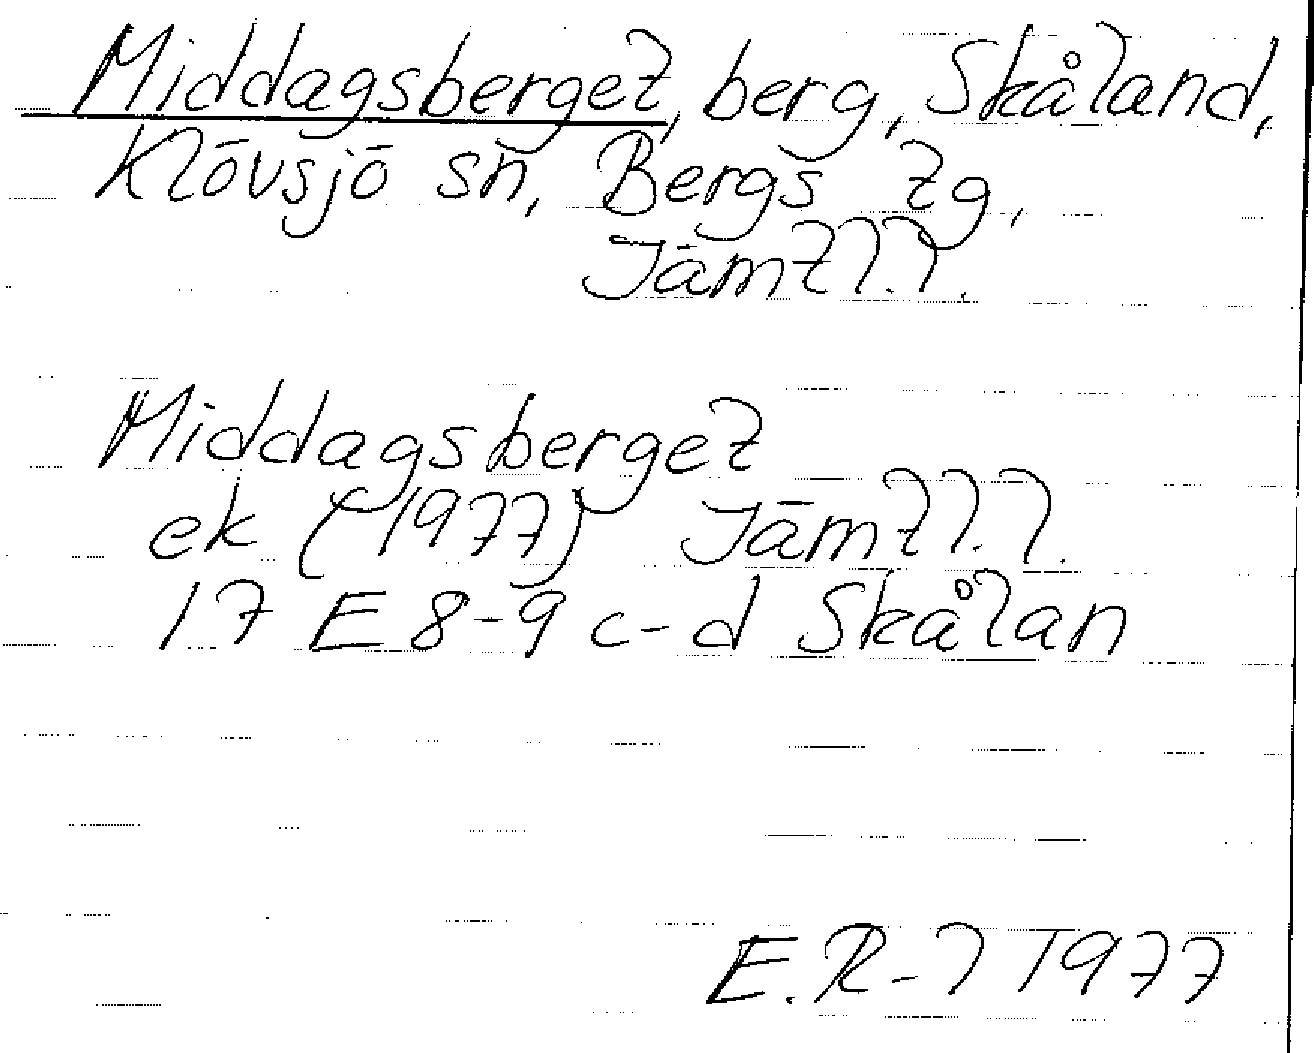 Middagsberget, berg, Skåland,
Klövsjö sn, Bergs tg,
Jämtl.l.
Middagsberget
ek (1977) Jämtl.l.
17 E 8-9 c-d Skålan
E.R-l 1977